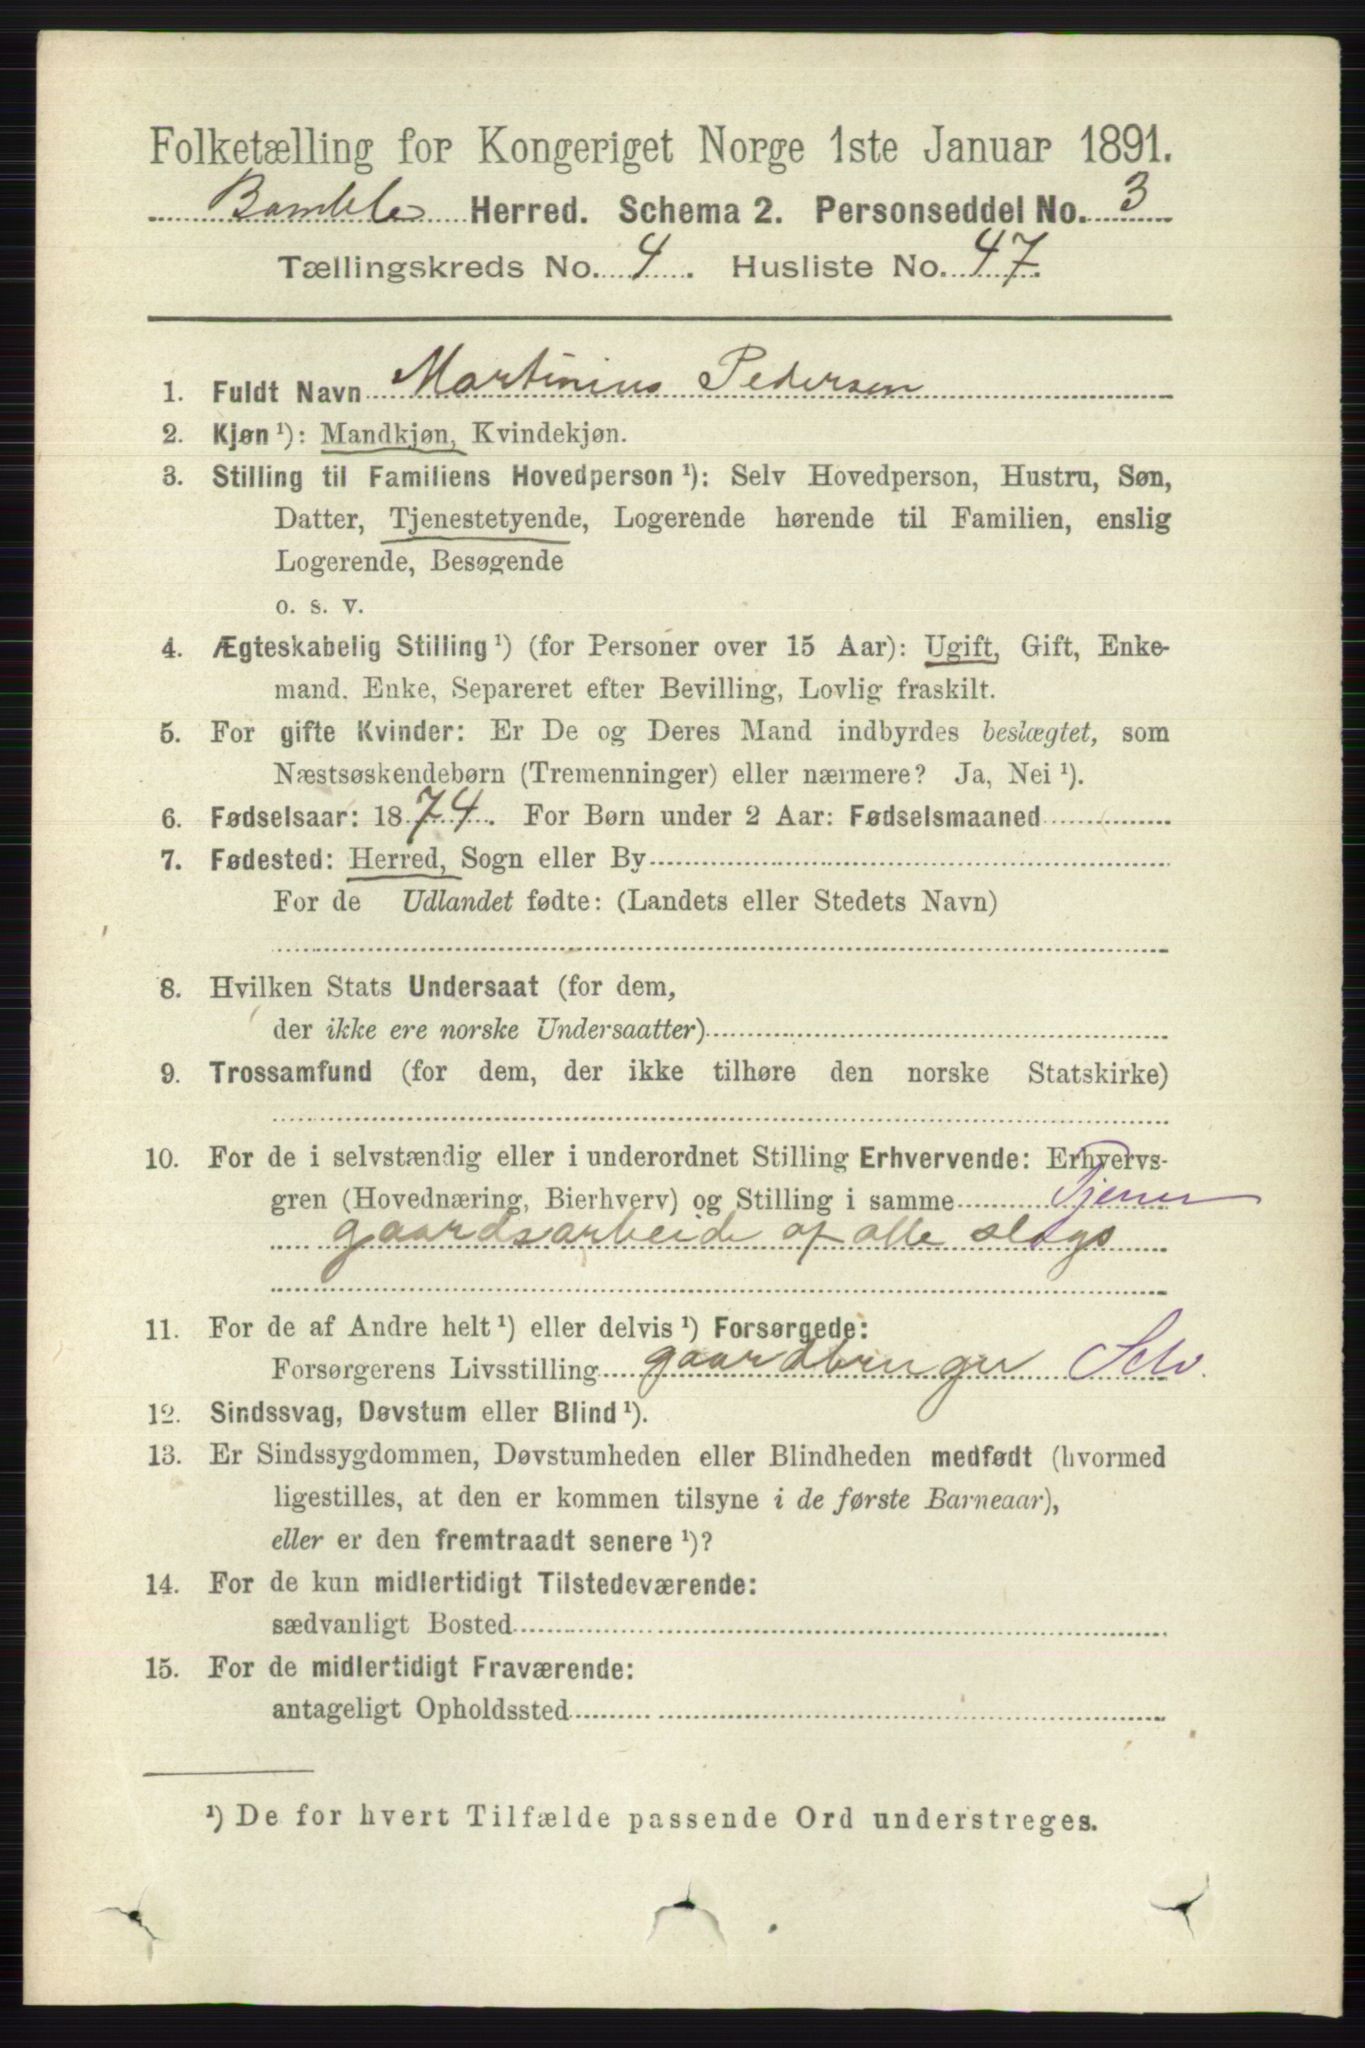 Folketælling for Kongeriget Norge 1ste Januar 1891.
Bamble Herred. Schema 2. Personseddel No. 3
Tællingskreds No. 4. Husliste No. 47.
1. Fuldt Navn Martinius Pedersen
2. Kjøn ¹): Mandkjøn, Kvindekjøn.
3. Stilling til Familiens Hovedperson ¹): Selv Hovedperson, Hustru, Søn,
Datter, Tjenestetyende, Logerende hørende til Familien, enslig
Logerende, Besøgende
o. s. v.
4. Ægteskabelig Stilling ¹) (for Personer over 15 Aar): Ugift, Gift, Enke-
mand, Enke, Separeret efter Bevilling, Lovlig fraskilt.
5. For gifte Kvinder: Er De og Deres Mand indbyrdes beslægtet, som
Næstsøskendebørn (Tremenninger) eller nærmere? Ja, Nei ¹).
6. Fødselsaar: 1874. For Børn under 2 Aar: Fødselsmaaned
7. Fødested: Herred, Sogn eller By
For de Udlandet fødte: (Landets eller Stedets Navn)
8. Hvilken Stats Undersaat (for dem,
der ikke ere norske Undersaatter)
9. Trossamfund (for dem, der ikke tilhøre den norske Statskirke)
10. For de i selvstændig eller i underordnet Stilling Erhvervende: Erhvervs-
gren (Hovednæring, Bierhverv) og Stilling i samme Tjener
gaardsarbeide af alle slags
11. For de af Andre helt ¹) eller delvis ¹) Forsørgede:
Forsørgerens Livsstilling gaardbruger Selv.
12. Sindssvag, Døvstum eller Blind ¹).
13. Er Sindssygdommen, Døvstumheden eller Blindheden medfødt (hvormed
ligestilles, at den er kommen tilsyne i de første Barneaar),
eller er den fremtraadt senere ¹)?
14. For de kun midlertidigt Tilstedeværende:
sædvanligt Bosted
15. For de midlertidigt Fraværende:
antageligt Opholdssted
¹) De for hvert Tilfælde passende Ord understreges.